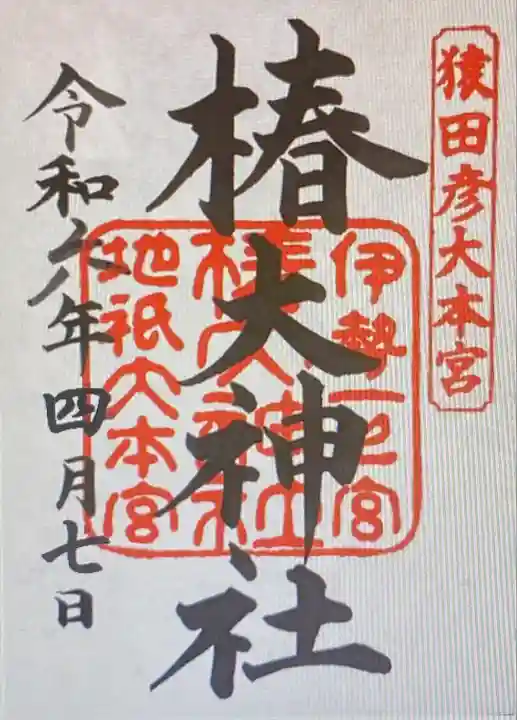 猿田彦大本宮
椿大神社
伊勢一之宮
椿大神社
地祇大本宮
令和六年四月七日